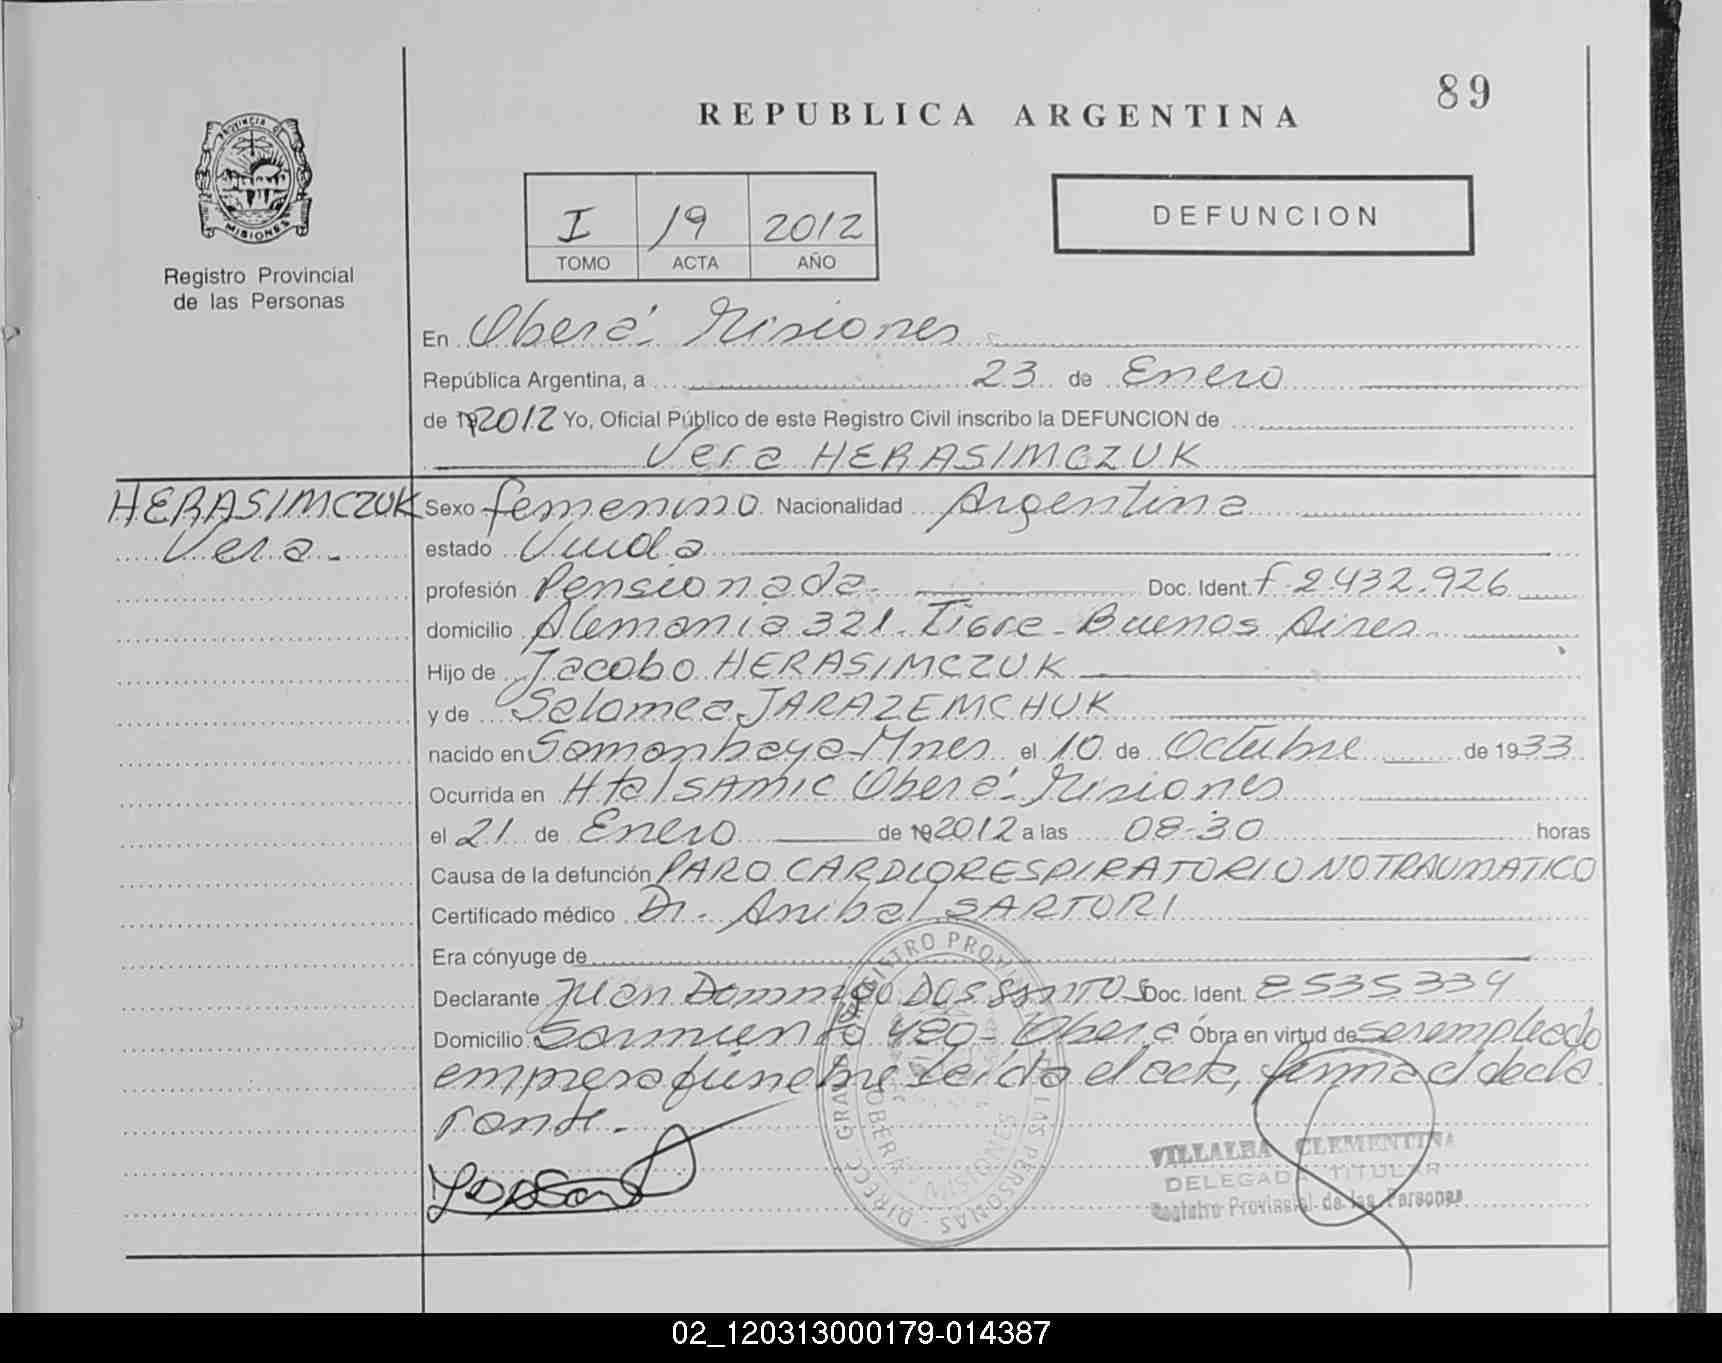 89
REPUBLICA ARGENTINA
PROVINCIA DE
MISIONES
Registro Provincial
de las Personas
I 19 2012
TOMO ACTA AÑO
DEFUNCION
En Oberá - Misiones
República Argentina, a 23 de Enero
de 192012 Yo, Oficial Público de este Registro Civil inscribo la DEFUNCION de
Vera HERASIMCZUK
HERASIMCZUK
Vera.-
Sexo femenino Nacionalidad Argentina
estado Viuda
profesión Pensionada.- Doc. Ident. F 2.432.926
domicilio Alemania 321. Tigre - Buenos Aires
Hijo de Jacobo HERASIMCZUK
y de Salomea JARAZEMCHUK
nacido en Samanbaya-Mnes el 10 de Octubre de 1933
Ocurrida en Htal SAMIC Oberá - Misiones
el 21 de Enero de 192012 a las 08-30 horas
Causa de la defunción PARO CARDIORESPIRATORIO NO TRAUMATICO
Certificado médico Dr. Anibal SARTORI
Era cónyuge de
Declarante Juan Domingo DOS SANTOS Doc. Ident. 8535334
Domicilio Sarmiento 480 - Oberá Obra en virtud de ser empleado
empresa fúnebre Leída el acta, firma el decla
rante.-
DIRECC. GRAL. REGISTRO PROVINCIAL DE LAS PERSONAS
OBERA MISIONES
VILLALBA CLEMENTINA
DELEGADA TITULAR
Registro Provincial de las Personas
02_120313000179-014387